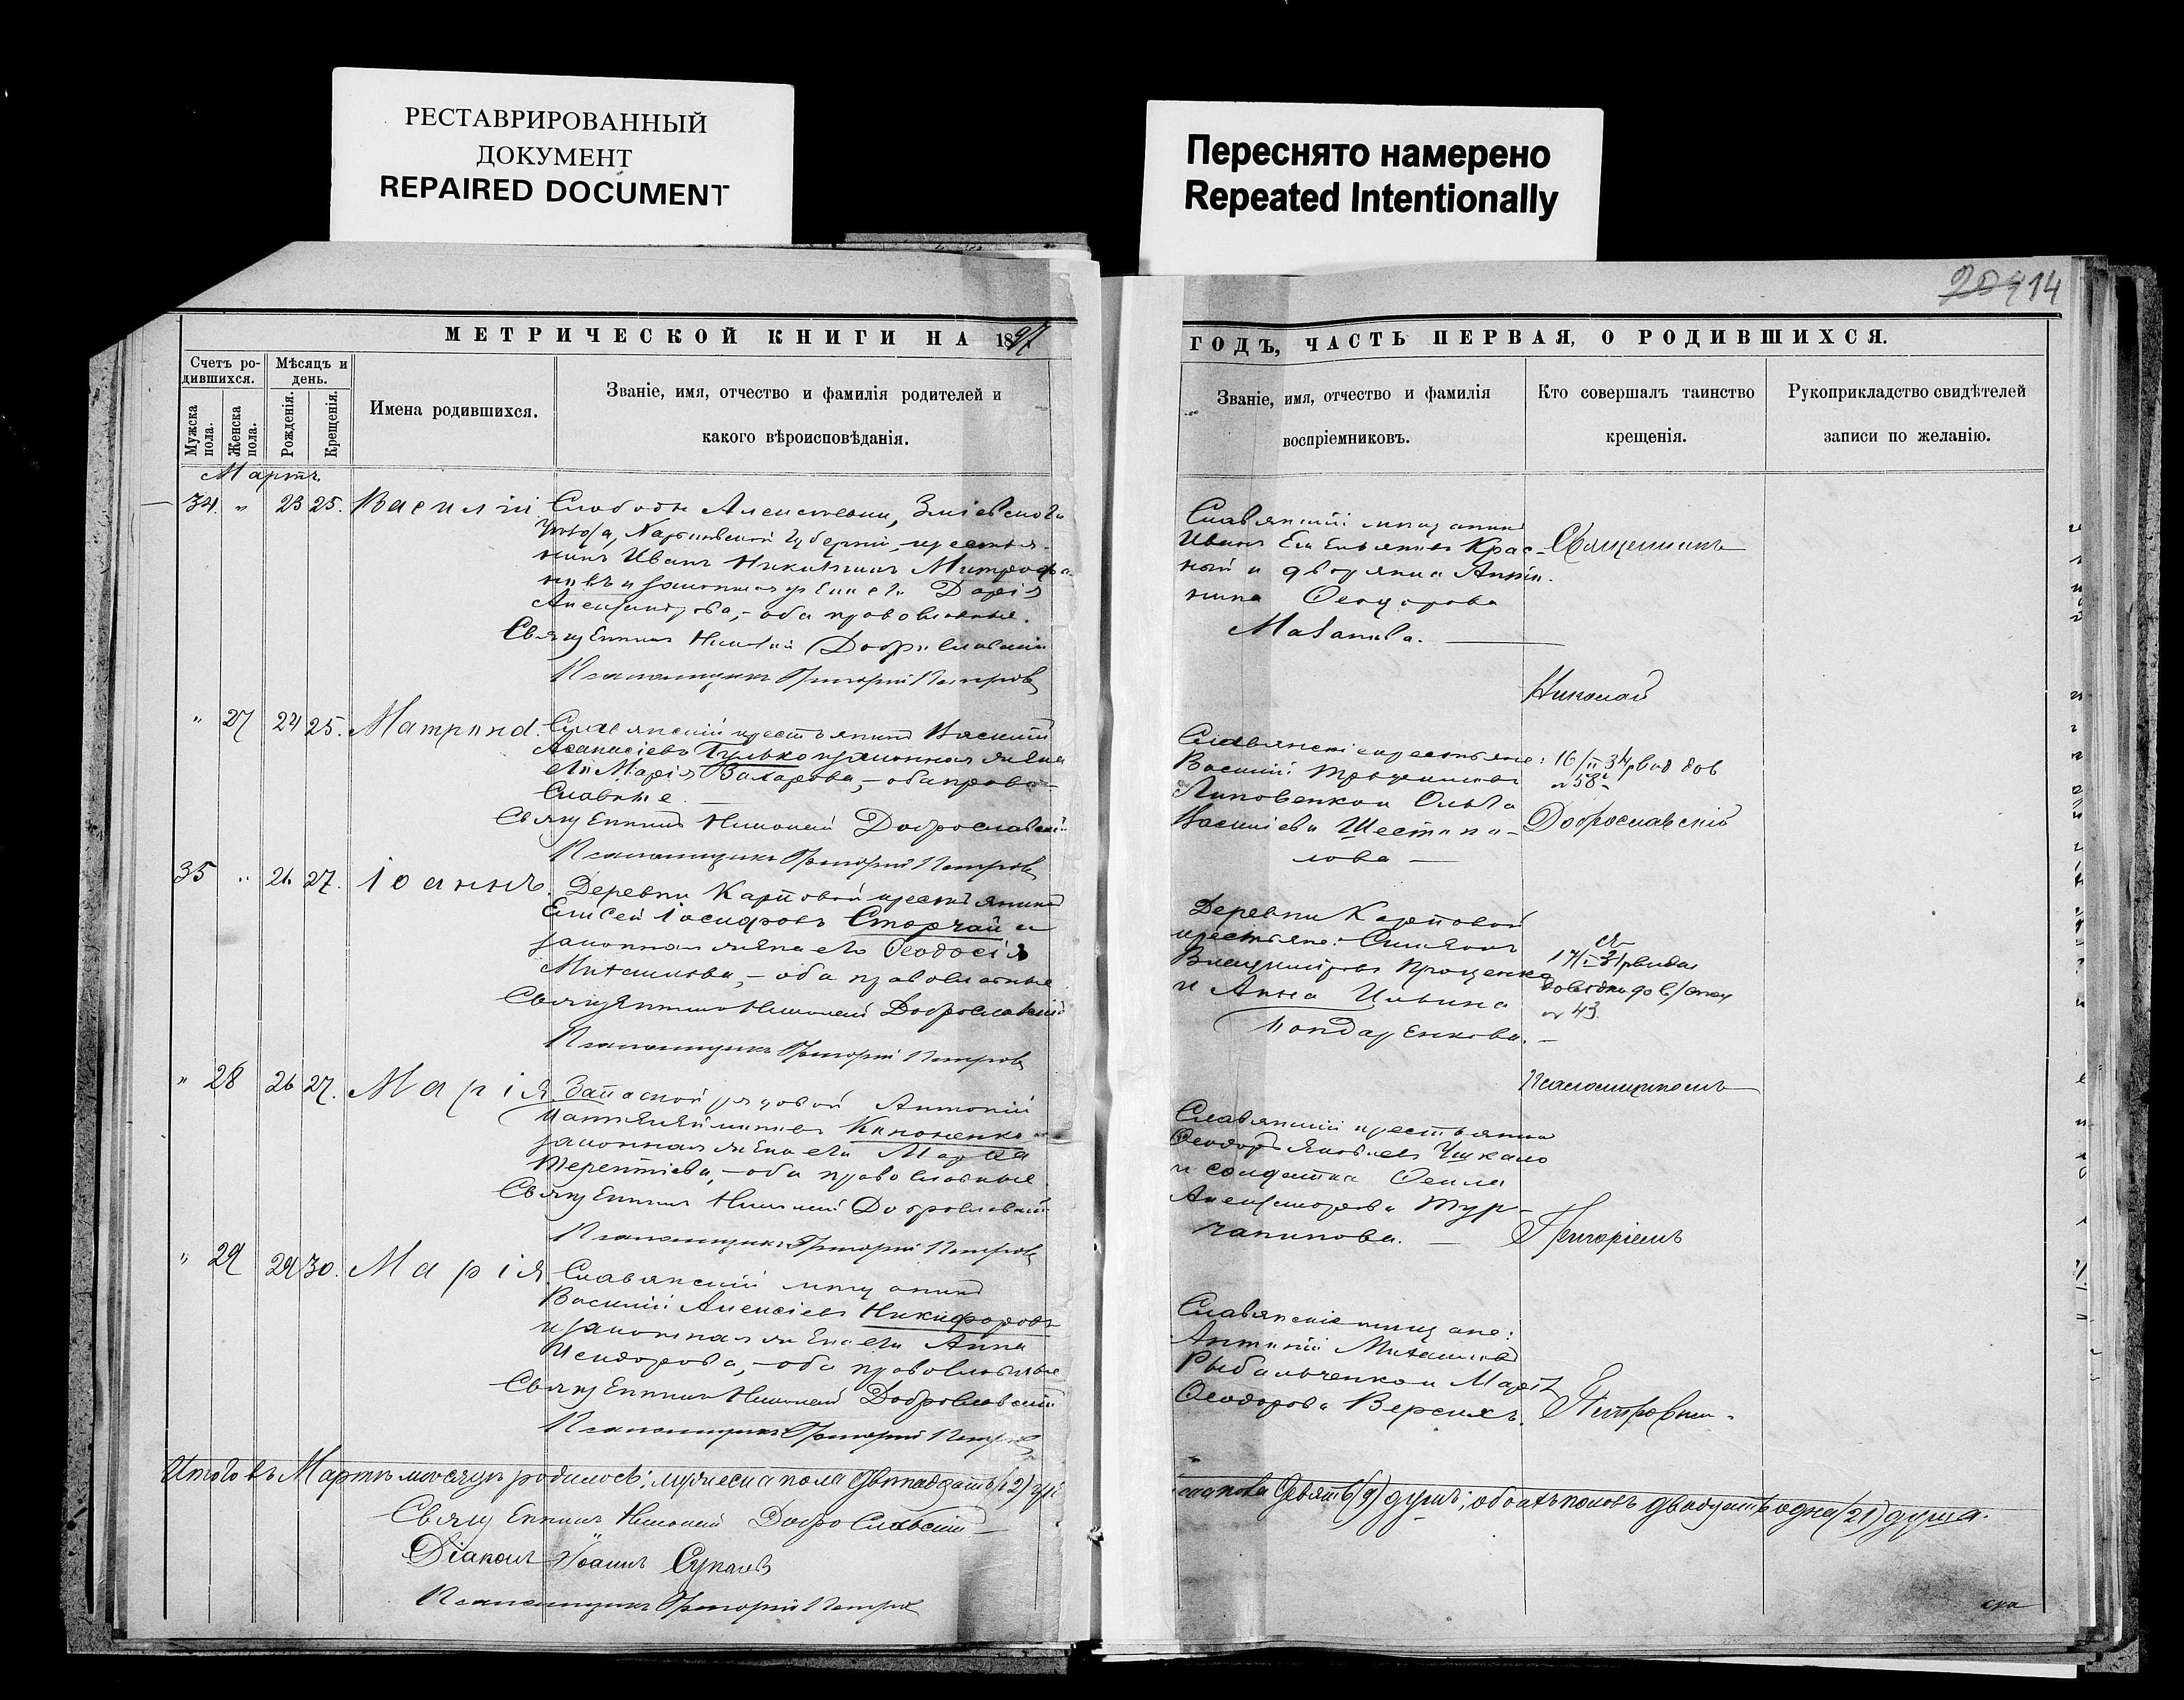 РЕСТАВРИРОВАННЫЙ
ДОКУМЕНТ
REPAIRED DOCUMENT
Переснято намерено
Repeated Intentionally
14
МЕТРИЧЕСКОЙ КНИГИ НА 1897
Счетъ ро-
дившихся.
Мѣсяцъ и
день.
Мужска
пола.
Женска
пола.
Рожденія.
Крещенія.
Имена родившихся.
Званіе, имя, отчество и фамилія родителей и
какого вѣроисповѣданія.
Мартъ.
34. " 23 25. Василій
Слободы Алексѣевки, Зміевского
уѣзда, Харьковской губерніи, крестья-
нинъ Иванъ Никитинъ Митрофа-
новъ и законная жена его Дарія
Александрова, - оба православные.
Священникъ Николай Доброславскій
Псаломщикъ Григорій Петровъ
" 27 24 25. Матрона.
Славянскій крестьянинъ Василій
Аѳанасіевъ Гулько и законная жена
его Марія Захарова, - оба право-
славные.
Священникъ Николай Доброславскій
Псаломщикъ Григорій Петровъ
35 " 26 27. Іоаннъ.
Деревни Карповой крестьянинъ
Елисей Іосифовъ Сторчай и
законная жена его Ѳеодосія
Михаилова, - оба православные
Священникъ Николай Доброславскій
Псаломщикъ Григорій Петровъ
" 28 26 27. Марія.
Запасной рядовой Антоній
Пантелеймоновъ Кононенко и
законная жена его Марѳа
Терентіева, - оба православные.
Священникъ Николай Доброславскій
Псаломщикъ Григорій Петровъ
" 29 29 30. Марія.
Славянскій мѣщанинъ
Василій Алексіевъ Никифоровъ
и законная жена его Анна
Исидорова, - оба православные
Священникъ Николай Доброславскій
Псаломщикъ Григорій Петровъ
Итого въ Мартѣ мѣсяцѣ родилось: мужеска пола двѣнадцать (12)
Священникъ Николай Доброславскій
Діаконъ Іоаннъ
Псаломщикъ Григорій Петровъ
ГОДЪ, ЧАСТЬ ПЕРВАЯ, О РОДИВШИХСЯ.
Званіе, имя, отчество и фамилія
воспріемниковъ.
Кто совершалъ таинство
крещенія.
Рукоприкладство свидѣтелей
записи по желанію.
Славянскій мѣщанинъ
Иванъ Емельяновъ Крас-
ный и дворянка Антони-
нина Ѳеодорова
Мазанова.
Славянскіе крестьяне:
Василій Трофимовъ
Липовенко и Ольга
Василіева Шестопа-
лова
Деревни Карповой
крестьяне: Симеонъ
Владиміровъ Проценко
и Анна Ильина
Бондаренкова.
Славянскій крестьянинъ
Ѳеодоръ Яковлевъ Чукало
и солдатка Ѳекла
Александрова Тур-
чанинова.
Славянскіе мѣщане:
Антоній Михаиловъ
Рыбальченко и Марія
Ѳеодорова Верскихъ.
Священникъ
Николай
16/II 34
№ 58
Доброславскій
№ 43.
Псаломщикомъ
Григоріемъ
Петровымъ.
пола девять (9) душъ; обоихъ половъ двадцать одна (21) душа.